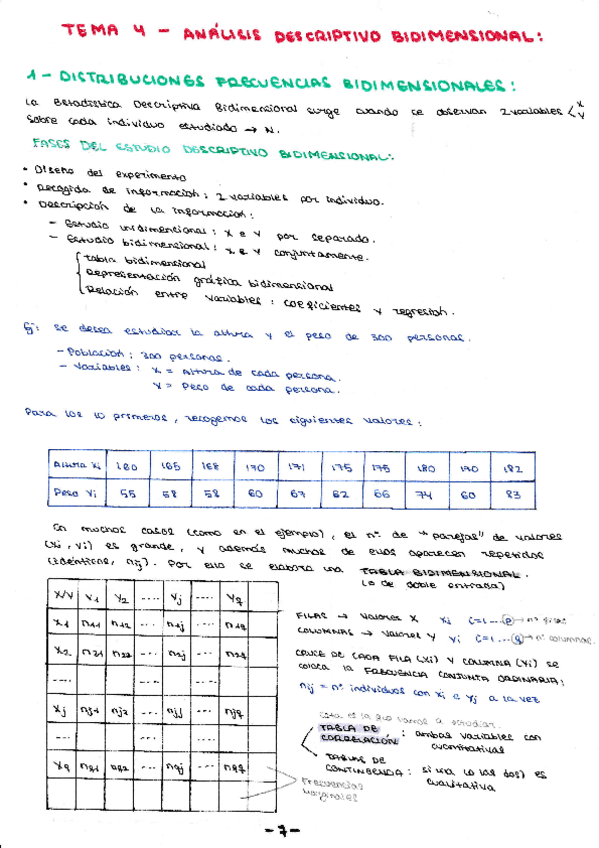 TEMA 4 - ANÁLISIS DESCRIPTIVO BIDIMENSIONAL:
1- DISTRIBUCIONES FRECUENCIAS BIDIMENSIONALES:
La Estadística Descriptiva Bidimensional surge cuando se observan 2 variables < X Y
sobre cada individuo estudiado → N.
FASES DEL ESTUDIO DESCRIPTIVO BIDIMENSIONAL:
• Diseño del experimento
• Recogida de información: 2 variables por individuo.
• Descripción de la información:
- Estudio unidimensional: X e Y por separado.
- Estudio bidimensional: X e Y conjuntamente.
Tabla bidimensional
Representación gráfica bidimensional
Relación entre variables: coeficientes y regresión.
Ej: se desea estudiar la altura y el peso de 300 personas.
- Población: 300 personas.
- Variables: X = Altura de cada persona.
Y = Peso de cada persona.
Para los 10 primeros, recogemos los siguientes valores:
Altura Xi 160 165 168 170 171 175 175 180 170 182
Peso Yi 55 58 58 60 67 62 66 74 60 83
En muchos casos (como en el ejemplo), el nº de "parejas" de valores
(xi, yi) es grande, y además muchos de ellos aparecen repetidos
(idénticos, nij). Por ello se elabora una TABLA BIDIMENSIONAL.
(o de doble entrada)
X/Y Y1 Y2 .... Yj .... Yq
X1 n11 n12 ... n1j ... n1q
X2 n21 n22 ... n2j ... n2q
.... ... ...
Xj nj1 nj2 ... njj ... njq
... ...
Xq nq1 nq2 ... nqj ... nqq
FILAS → Valores X xi i=1...p → nº filas
COLUMNAS → Valores Y yi i=1...q → nº columnas.
CRUCE DE CADA FILA (Xi) Y COLUMNA (Yi) se
coloca la FRECUENCIA CONJUNTA ORDINARIA:
nij = nº individuos con xi e yj a la vez
Esta es la que vamos a estudiar.
TABLA DE CORRELACIÓN: ambas variables son
cuantitativas
TABLAS DE CONTINGENCIA: si una (o las dos) es
cualitativa
Frecuencias
marginales
- 7 -